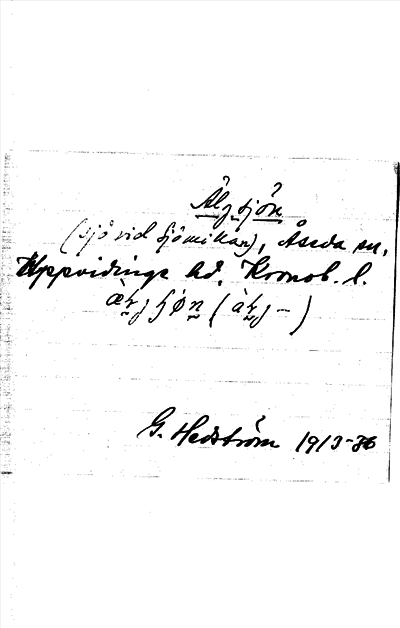 Älgsjön
(sjö vid Sjömikan), Åseda sn,
Uppvidinge hd, Kronob. l.
G. Hedström 1913-36